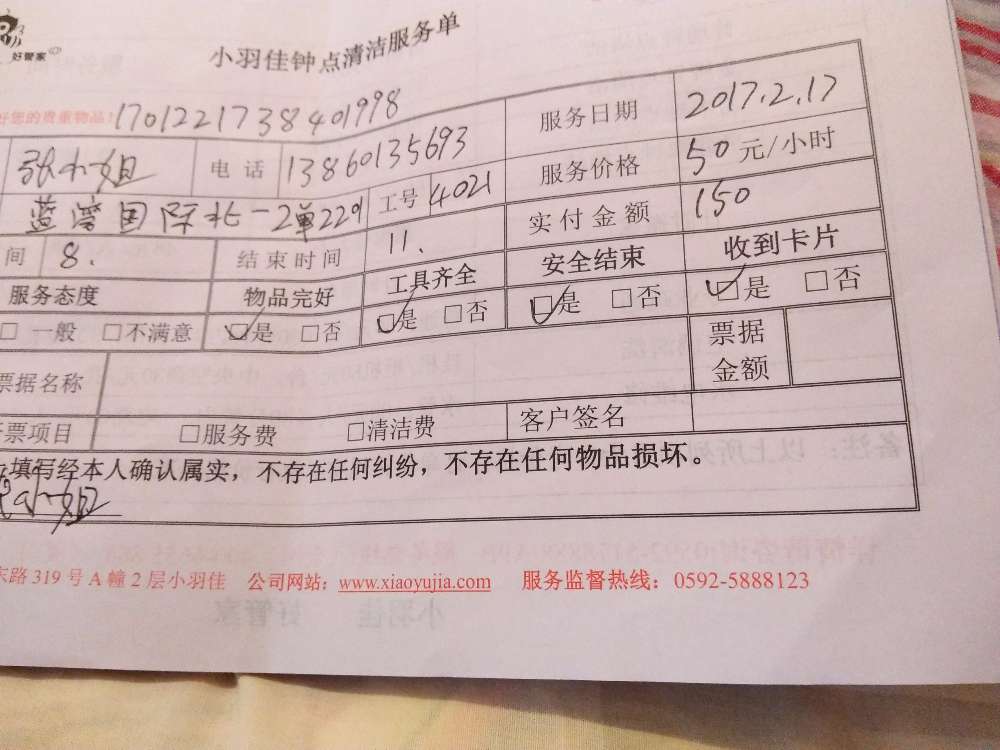 好管家
小羽佳钟点清洁服务单
好您的贵重物品! 1701221738401998
张小姐 电话 13860135693 服务日期 2017.2.17
蓝湾国际北一2单229 工号 4021 服务价格 50元/小时
间 8. 结束时间 11. 实付金额 150
服务态度 物品完好 工具齐全 安全结束 收到卡片
□一般 □不满意 ☑是 □否 ☑是 □否 ☑是 □否 ☑是 □否
票据名称 票据金额
票项目 □服务费 □清洁费 客户签名
填写经本人确认属实，不存在任何纠纷，不存在任何物品损坏。
张小姐
东路319号A幢2层小羽佳 公司网站：www.xiaoyujia.com 服务监督热线：0592-5888123